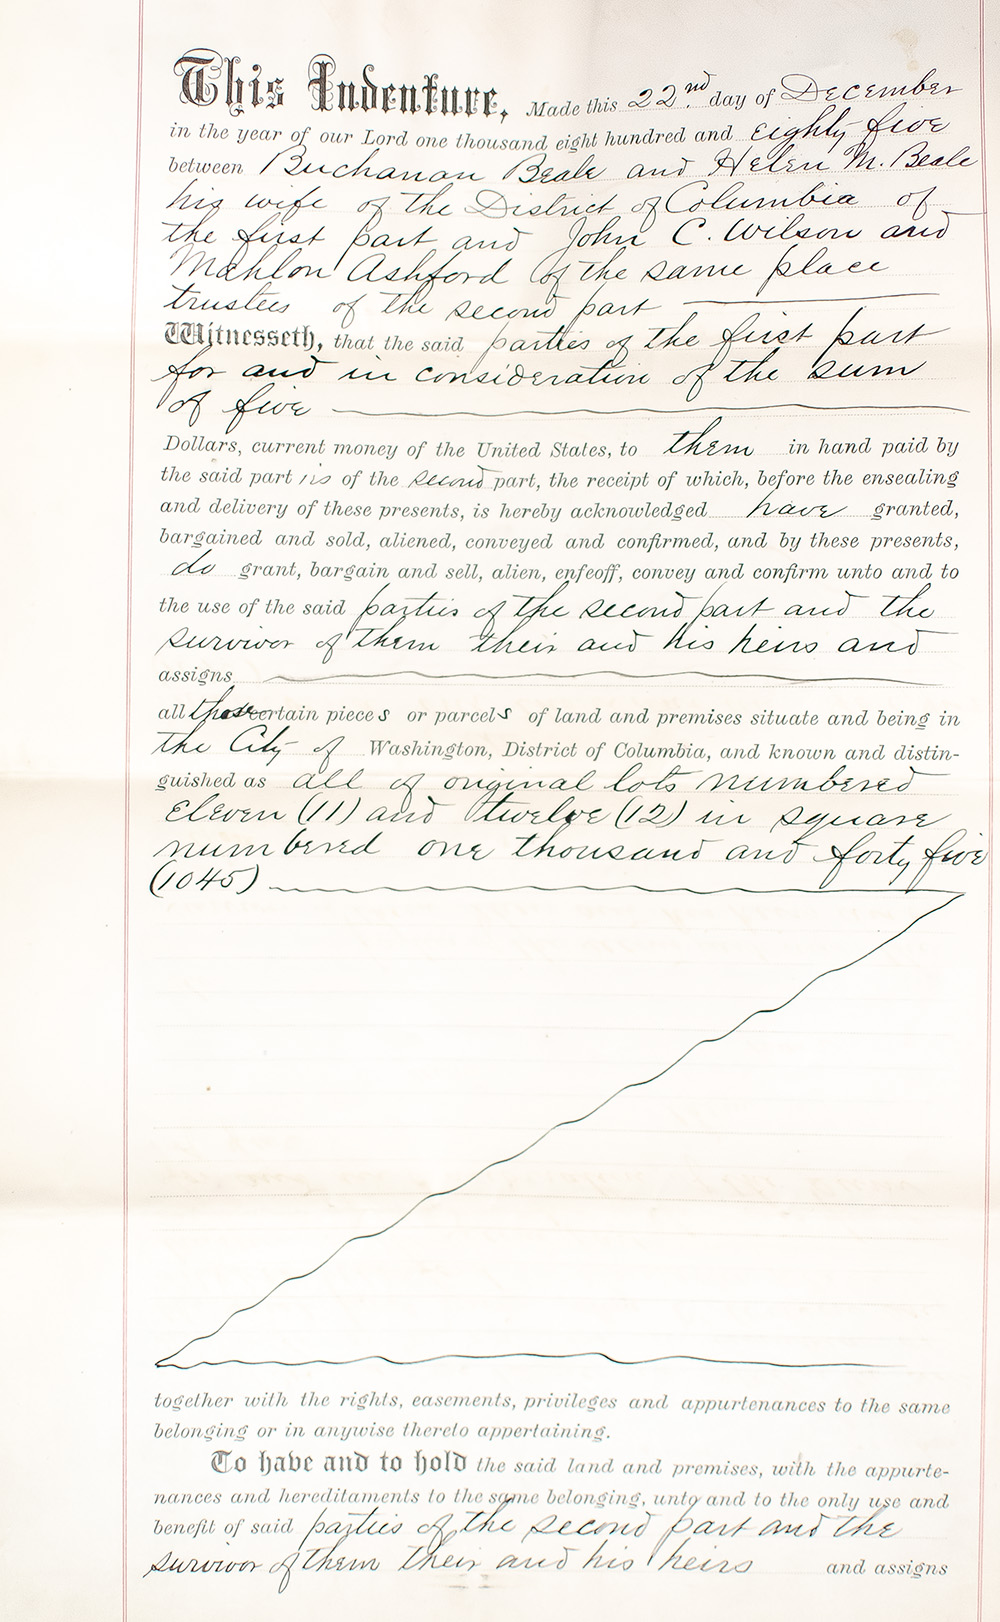 This Indenture, Made this 22nd. day of December
in the year of our Lord one thousand eight hundred and eighty five
between Buchanan Beale and Helen M. Beale
his wife of the District of Columbia of
the first part and John C. Wilson and
Mahlon Ashford of the same place
trustees of the second part
Witnesseth, that the said parties of the first part
for and in consideration of the sum
of five
Dollars, current money of the United States, to them in hand paid by
the said part ies of the second part, the receipt of which, before the ensealing
and delivery of these presents, is hereby acknowledged have granted,
bargained and sold, aliened, conveyed and confirmed, and by these presents,
do grant, bargain and sell, alien, enfeoff, convey and confirm unto and to
the use of the said parties of the second part and the
survivor of them their and his heirs and
assigns
all those certain pieces or parcels of land and premises situate and being in
the City of Washington, District of Columbia, and known and distin-
guished as all of original lots numbered
eleven (11) and twelve (12) in square
numbered one thousand and forty five
(1045)
together with the rights, easements, privileges and appurtenances to the same
belonging or in anywise thereto appertaining.
To have and to hold the said land and premises, with the appurte-
nances and hereditaments to the same belonging, unto and to the only use and
benefit of said parties of the second part and the
survivor of them their and his heirs and assigns